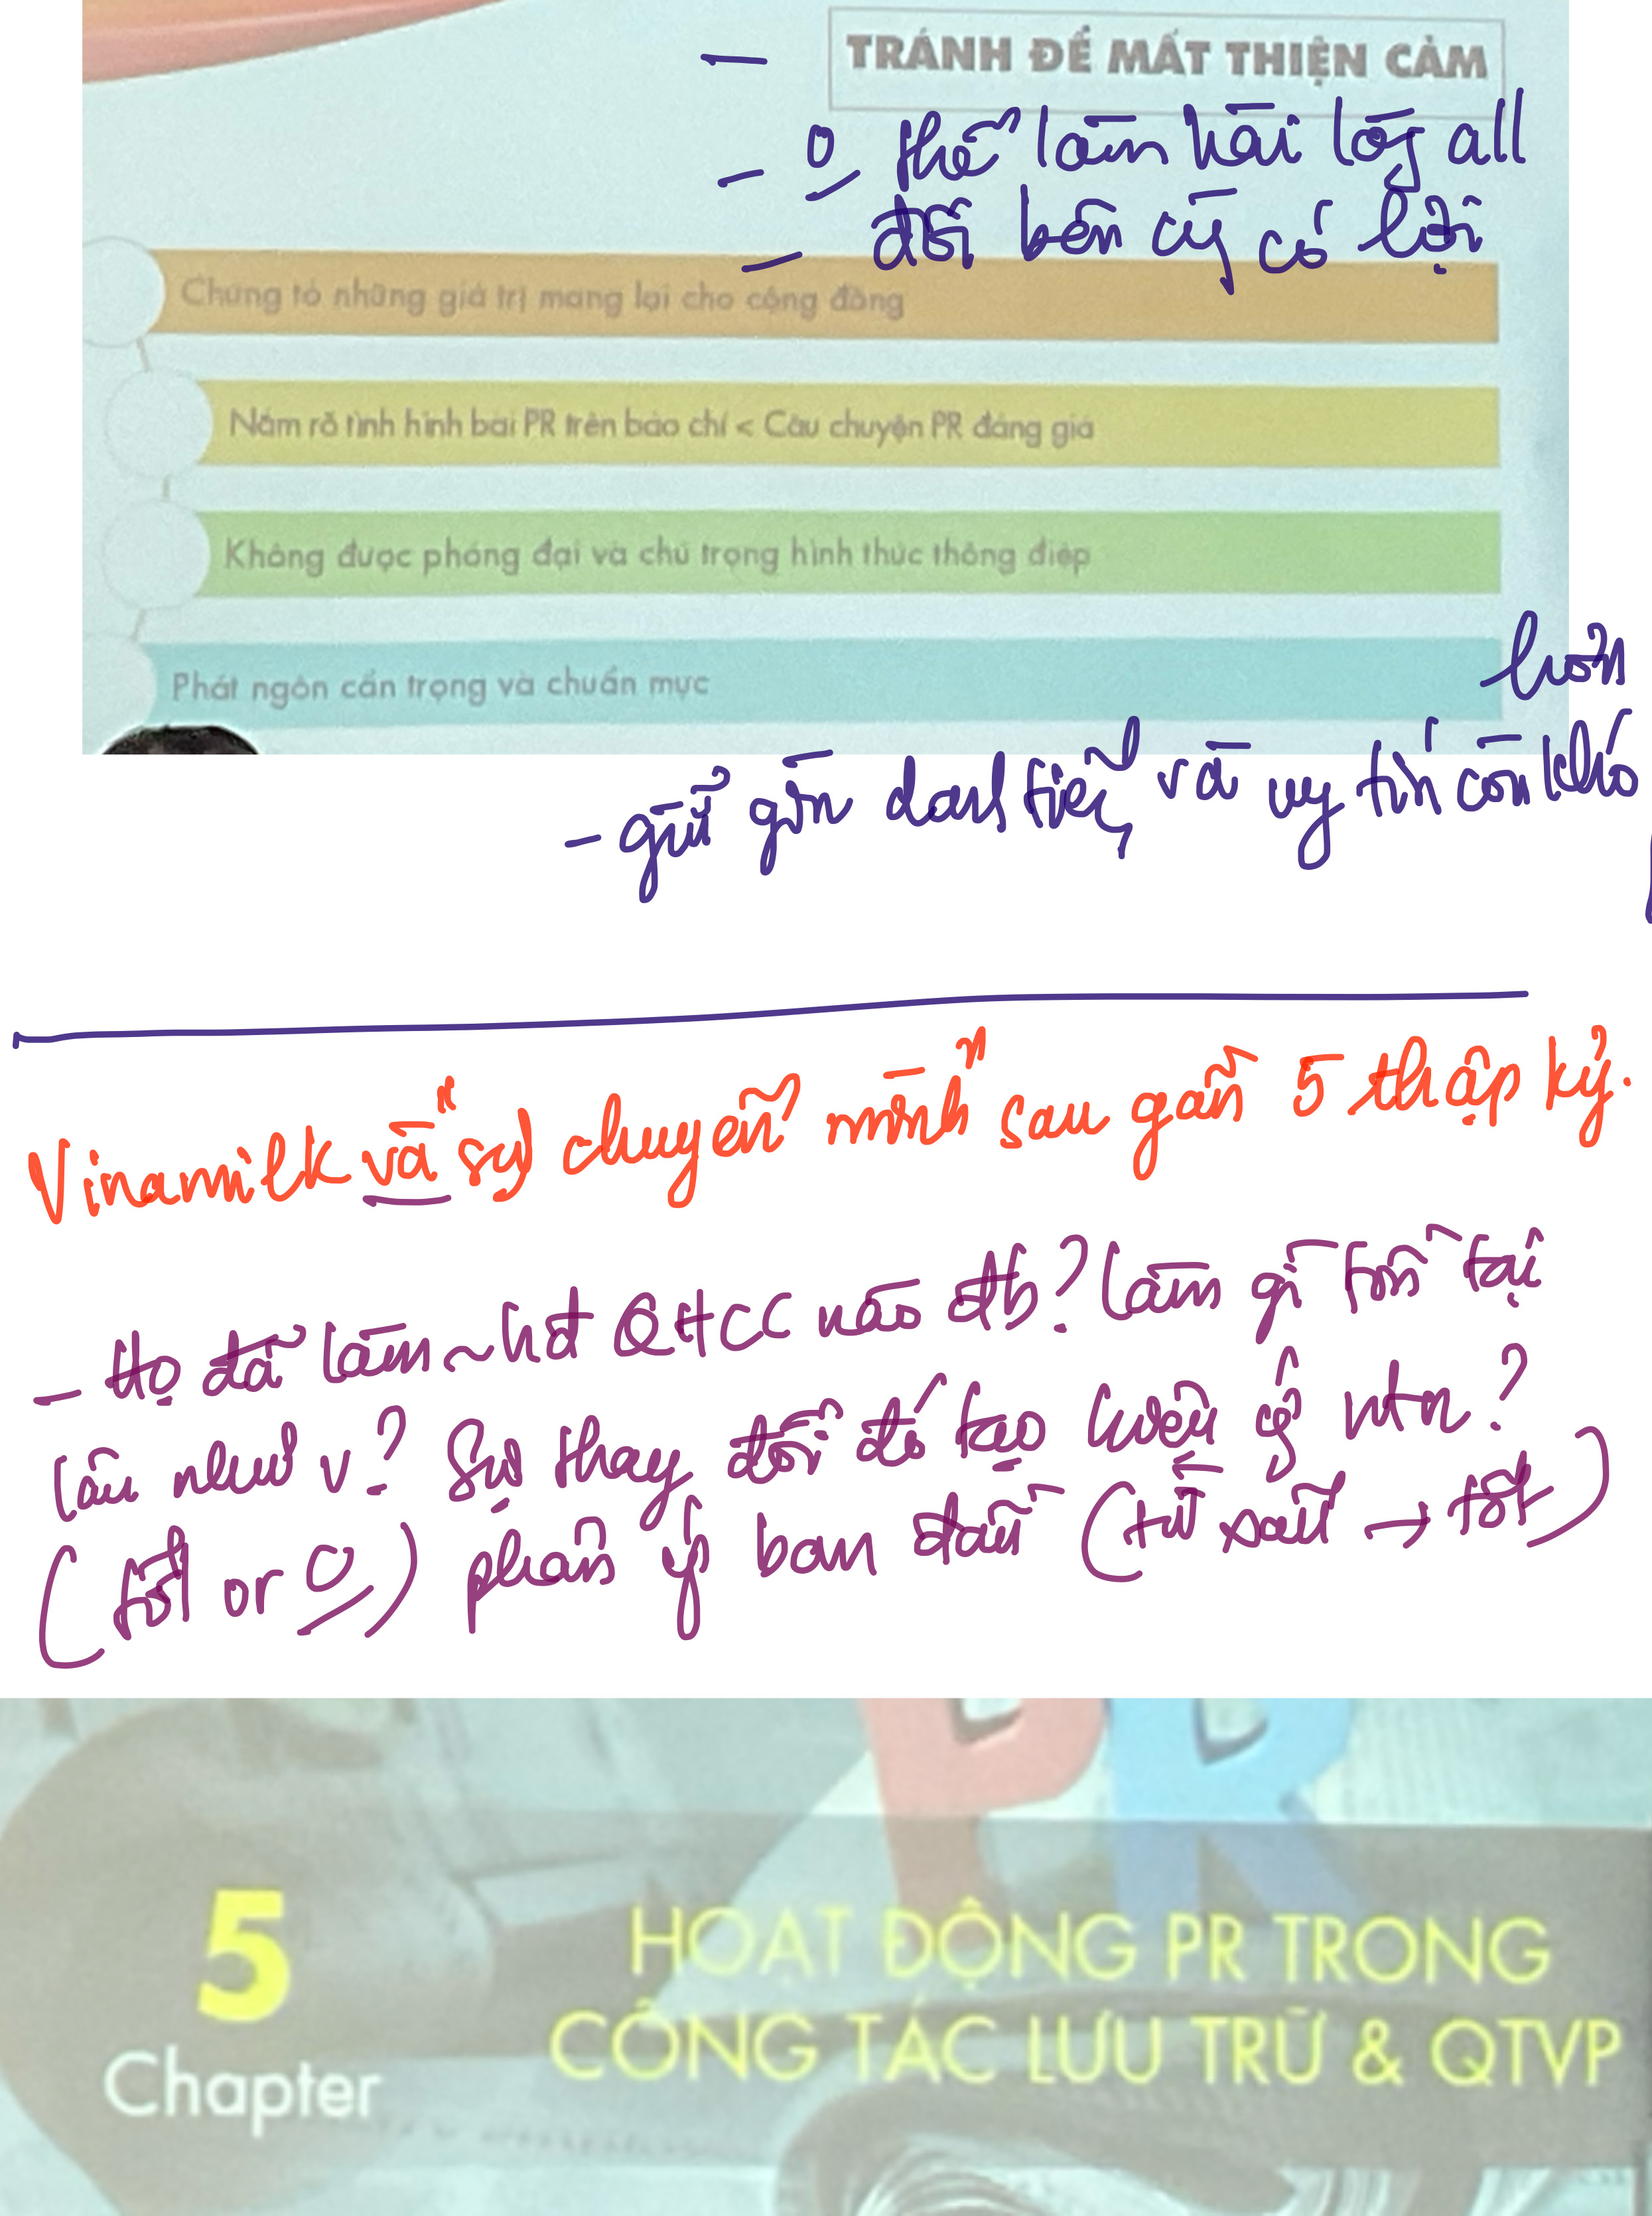 TRÁNH ĐỂ MẤT THIỆN CẢM
–
– 0 thể làm hài lòg all
– đôi bên cùg có lợi
Chứng tỏ những giá trị mang lại cho cộng đồng
Nắm rõ tình hình bài PR trên báo chí < Câu chuyện PR đáng giá
Không được phóng đại và chú trọng hình thức thông điệp
Phát ngôn cẩn trọng và chuẩn mực
hơn
– giữ gìn danh tiếg và uy tín còn khó
Vinamilk và sự chuyển mình sau gần 5 thập kỷ.
– Họ đã làm ~ hđ QHCC nào đb? làm gì tồn tại
lâu như v? Sự thay đổi đó tạo hiệu ứ ntn?
(tốt or 0) phản ứ ban đầu (từ xấu → tốt)
PR
5
Chapter
HOẠT ĐỘNG PR TRONG
CÔNG TÁC LƯU TRỮ & QTVP